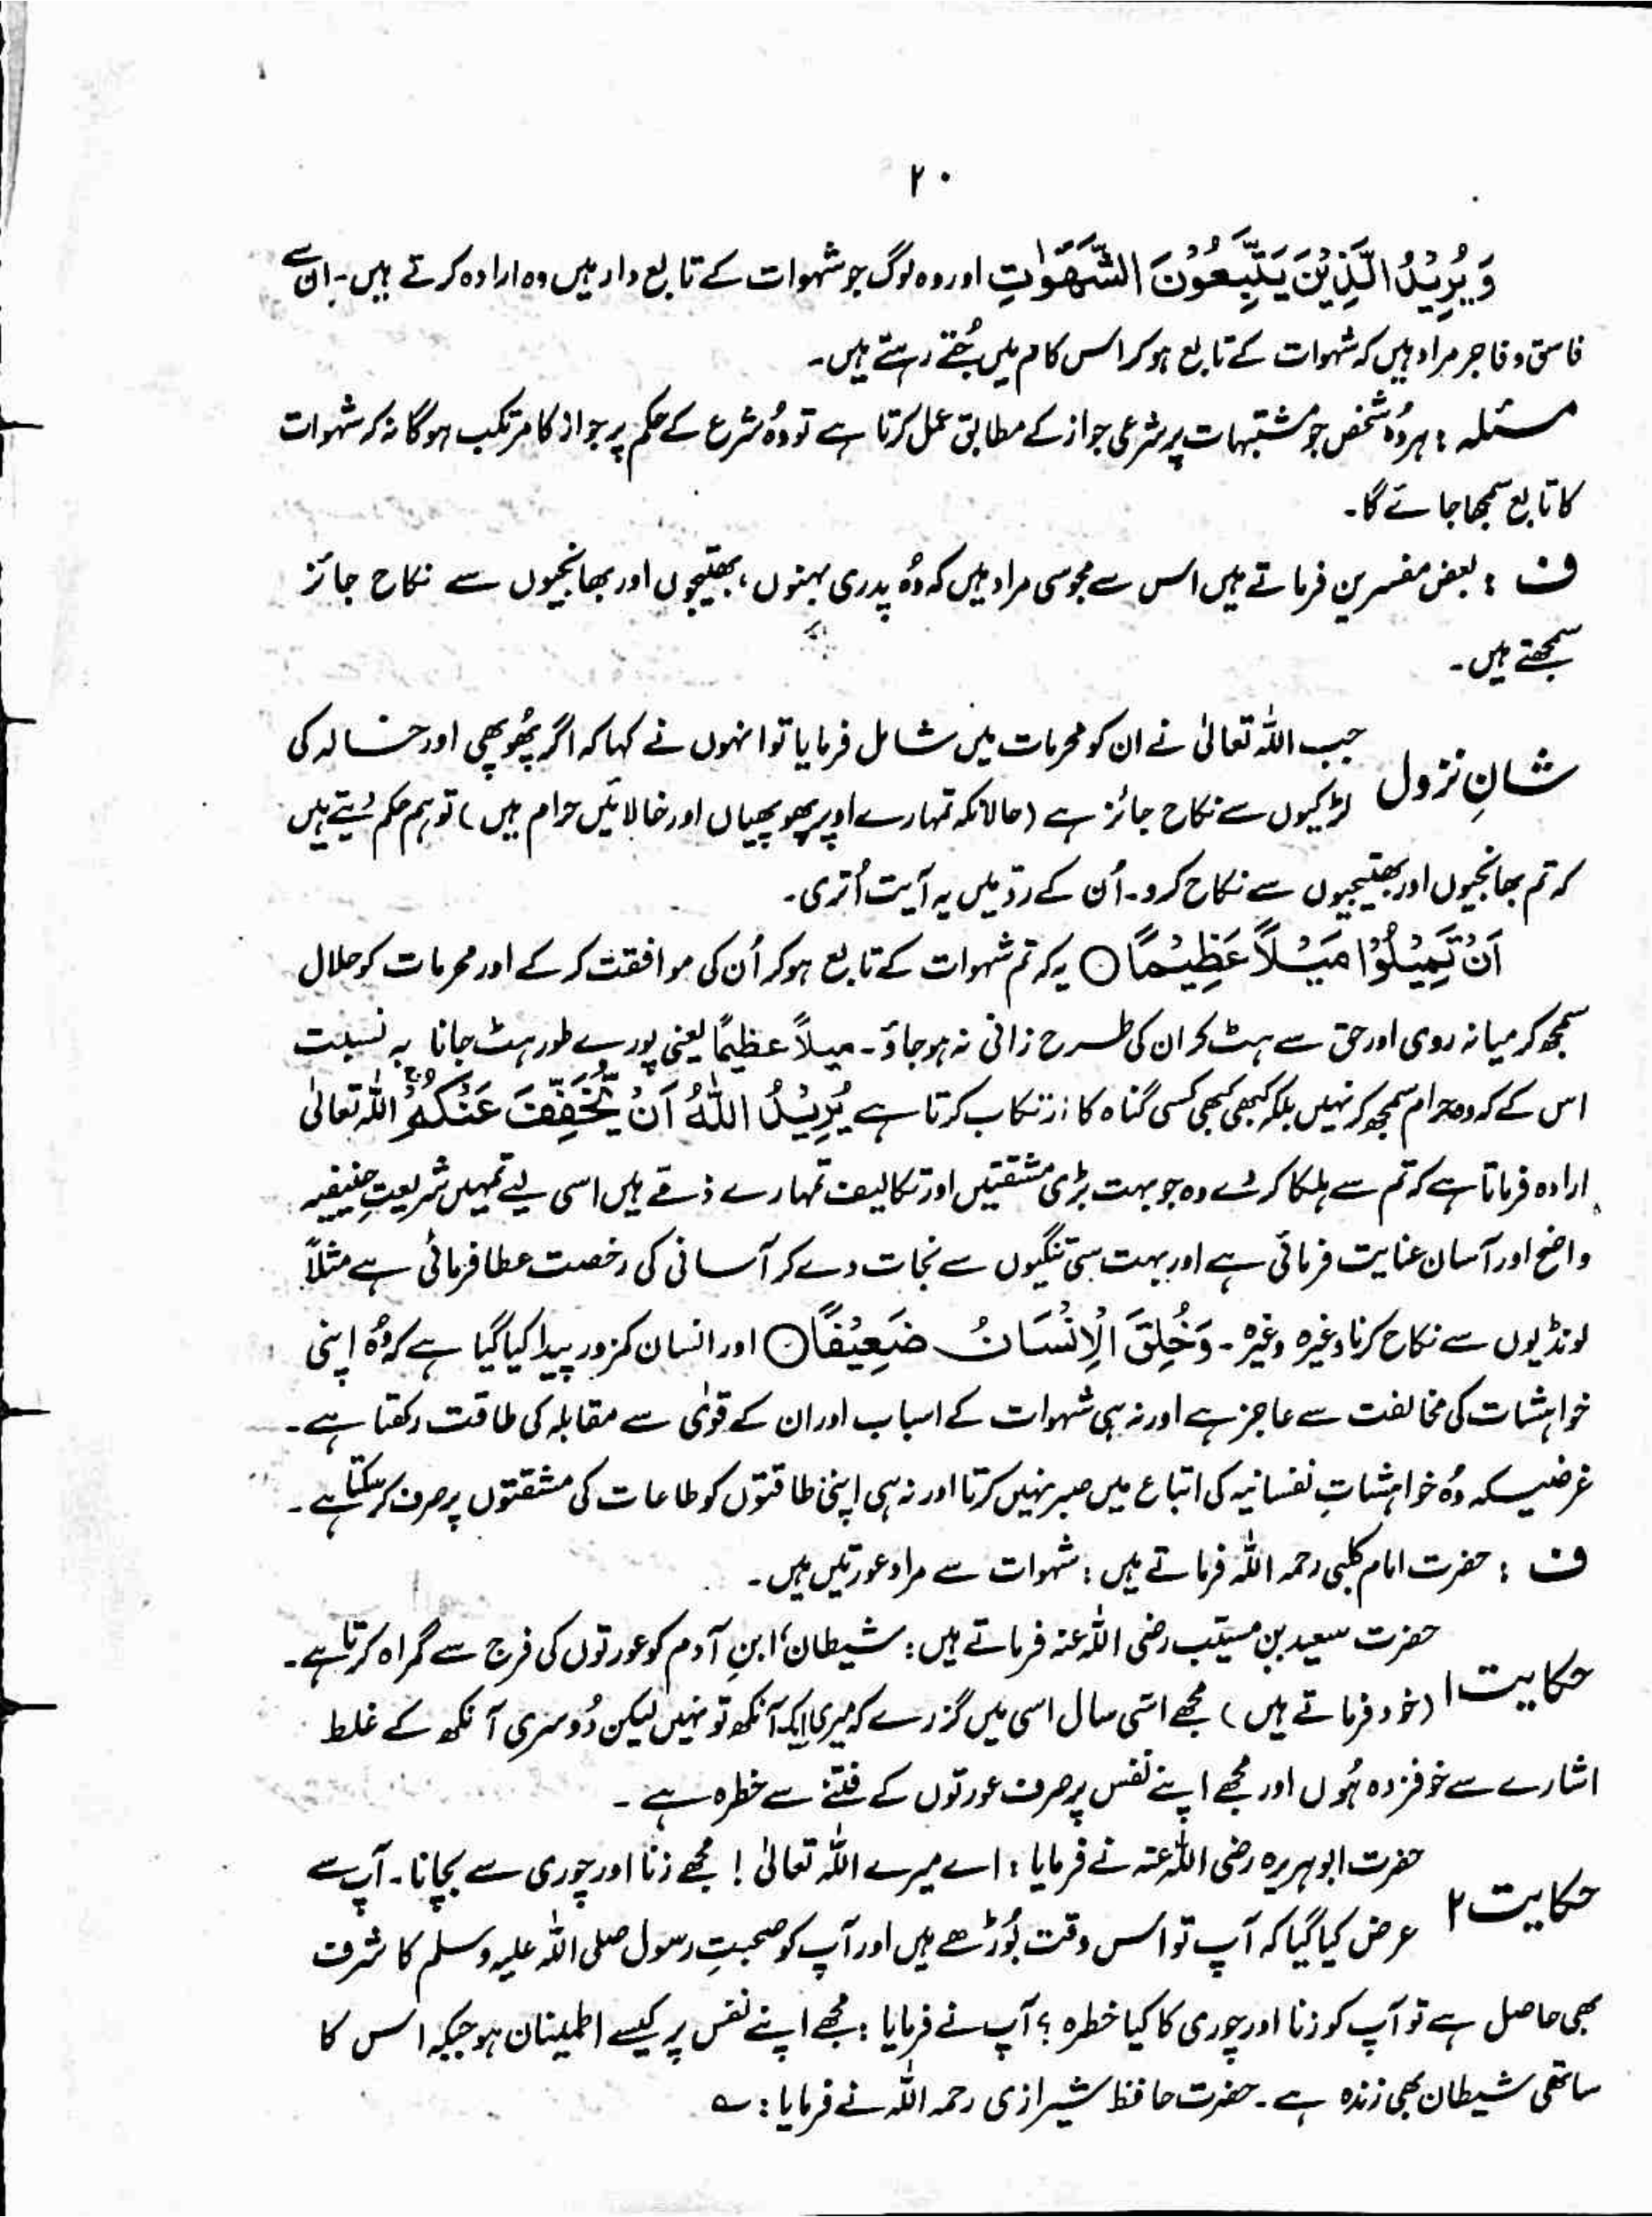 ۲۰
وَيُرِيْدُ الَّذِيْنَ يَتَّبِعُوْنَ الشَّهَوٰتِ اور وہ لوگ جو شہوات کے تابع دار ہیں وہ ارادہ کرتے ہیں۔ ان سے
فاسق و فاجر مراد ہیں کہ شہوات کے تابع ہو کر اس کام میں جُتے رہتے ہیں۔
مسئلہ : ہر وُہ شخص جو مشتبہات پر شرعی جواز کے مطابق عمل کرتا ہے تو وُہ شرع کے حکم پر جواز کا مرتکب ہوگا نہ کہ شہوات
کا تابع سمجھا جائے گا۔
ف : بعض مفسرین فرماتے ہیں اس سے مجوسی مراد ہیں کہ وُہ پدری بہنوں، بھتیجوں اور بھانجیوں سے نکاح جائز
سمجھتے ہیں۔
شانِ نزول جب اللہ تعالیٰ نے ان کو محرمات میں شامل فرمایا تو انہوں نے کہا کہ اگر پھُوپھی اور خالہ کی
لڑکیوں سے نکاح جائز ہے (حالانکہ تمہارے اوپر پھوپھیاں اور خالائیں حرام ہیں) تو ہم حکم دیتے ہیں
کہ تم بھانجیوں اور بھتیجیوں سے نکاح کرو۔ اُن کے ردّ میں یہ آیت اُتری۔
اَنْ تَمِيْلُوْا مَيْلًا عَظِيْمًا ○ یہ کہ تم شہوات کے تابع ہو کر اُن کی موافقت کر کے اور محرمات کو حلال
سمجھ کر میانہ روی اور حق سے ہٹ کر ان کی طرح زانی نہ ہو جاؤ۔ میلاً عظیمًا یعنی پورے طور ہٹ جانا بہ نسبت
اس کے کہ وہ حرام سمجھ کر نہیں بلکہ کبھی کبھی کسی گناہ کا ارتکاب کرتا ہے يُرِيْدُ اللّٰهُ اَنْ يُّخَفِّفَ عَنْكُمْ ۚ اللہ تعالیٰ
ارادہ فرماتا ہے کہ تم سے ہلکا کر دے وہ جو بہت بڑی مشقتیں اور تکالیف تمہارے ذمّے ہیں اسی لیے تمہیں شریعتِ حنیفیہ
واضح اور آسان عنایت فرمائی ہے اور بہت سی تنگیوں سے نجات دے کر آسانی کی رخصت عطا فرمائی ہے مثلاً
لونڈیوں سے نکاح کرنا وغیرہ وغیرہ۔ وَخُلِقَ الْاِنْسَانُ ضَعِيْفًا ○ اور انسان کمزور پیدا کیا گیا ہے کہ وُہ اپنی
خواہشات کی مخالفت سے عاجز ہے اور نہ ہی شہوات کے اسباب اور ان کے قوٰی سے مقابلہ کی طاقت رکھتا ہے۔
غرضیکہ وُہ خواہشاتِ نفسانیہ کی اتباع میں صبر نہیں کرتا اور نہ ہی اپنی طاقتوں کو طاعات کی مشقتوں پر صرف کر سکتا ہے۔
ف : حضرت امام کلبی رحمہ اللہ فرماتے ہیں : شہوات سے مراد عورتیں ہیں۔
حکایت ۱ حضرت سعید بن مسیّب رضی اللہ عنہ فرماتے ہیں : شیطان، ابنِ آدم کو عورتوں کی فرج سے گمراہ کرتا ہے۔
(خود فرماتے ہیں) مجھے اسّی سال اسی میں گزرے کہ میری ایک آنکھ تو نہیں لیکن دُوسری آنکھ کے غلط
اشارے سے خوفزدہ ہُوں اور مجھے اپنے نفس پر صرف عورتوں کے فتنے سے خطرہ ہے۔
حکایت ۲ حضرت ابوہریرہ رضی اللہ عنہ نے فرمایا : اے میرے اللہ تعالیٰ! مجھے زنا اور چوری سے بچانا۔ آپ سے
عرض کیا گیا کہ آپ تو اس وقت بُوڑھے ہیں اور آپ کو صحبتِ رسول صلی اللہ علیہ وسلم کا شرف
بھی حاصل ہے تو آپ کو زنا اور چوری کا کیا خطرہ؟ آپ نے فرمایا : مجھے اپنے نفس پر کیسے اطمینان ہو جبکہ اس کا
ساتھی شیطان بھی زندہ ہے۔ حضرت حافظ شیرازی رحمہ اللہ نے فرمایا : ؎